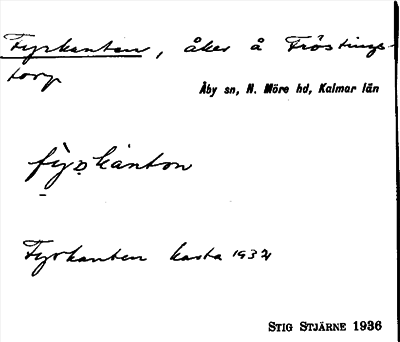 Fyrkanten, åker å Fröstings-
torp
Åby sn, N. Möre hd, Kalmar län
Fyrkanten karta 1932
STIG STJÄRNE 1936